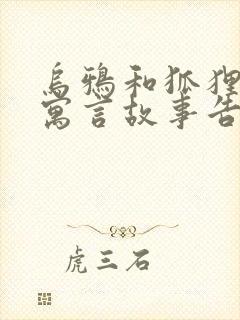 乌鸦和狐狸
寓言故事告
虎三石